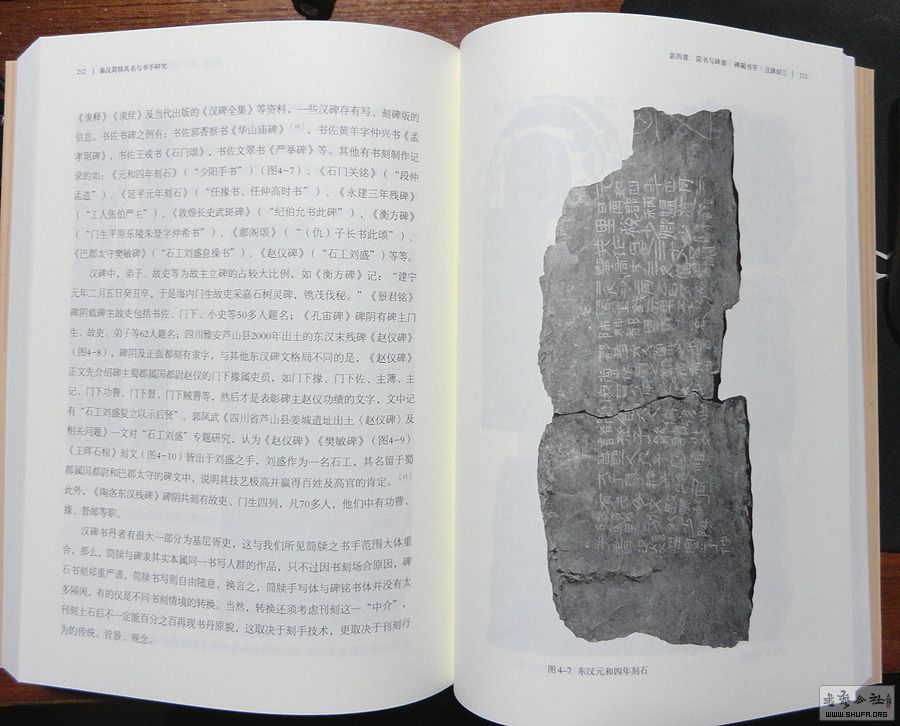 212 | 秦汉简牍具名与书手研究
《隶释》《隶续》及当代出版的《汉碑全集》等资料，一些汉碑存有写、刻碑版的
信息。书佐书碑之例有：书佐郭香察书《华山庙碑》[10]，书佐黄羊字仲兴书《孟
孝琚碑》，书佐王戒书《石门颂》，书佐文翠书《严举碑》等。其他有书刻制作记
录的如：《元和四年刻石》（“少阳手书”）（图4-7）、《石门关铭》（“段仲
孟造”）、《延平元年刻石》（“任掾书、任仲高时书”）、《永建三年残碑》
（“工人张伯严主”）、《敦煌长史武斑碑》（“纪伯允书此碑”）、《衡方碑》
（“门生平原乐陵朱登字仲希书”）、《郙阁颂》（“（仇）子长书此颂”）、
《巴郡太守樊敏碑》（“石工刘盛息操书”）、《赵仪碑》（“石工刘盛”）等等。
汉碑中，弟子、故吏等为故主立碑的占较大比例，如《衡方碑》记：“建宁
元年二月五日癸丑卒，于是海内门生故吏采嘉石树灵碑，镌茂伐秘。”《景君铭》
碑阴载碑主故吏包括书佐、门下、小史等50多人题名；《孔宙碑》碑阴有碑主门
生、故吏、弟子等62人题名；四川雅安芦山县2000年出土的东汉末残碑《赵仪碑》
（图4-8），碑阴及正面都刻有隶字，与其他东汉碑文格局不同的是，《赵仪碑》
正文先介绍碑主蜀郡属国都尉赵仪的门下掾属吏员，如门下掾、门下佐、主簿、主
记、门下功曹、门下督、门下贼曹等，然后才是表彰碑主赵仪功绩的文字，文中记
有“石工刘盛复立以示后贤”。郭凤武《四川省芦山县姜城遗址出土〈赵仪碑〉及
相关问题》一文对“石工刘盛”专题研究，认为《赵仪碑》《樊敏碑》（图4-9）
《王晖石棺》刻文（图4-10）皆出于刘盛之手，刘盛作为一名石工，其名留于蜀
郡属国都尉和巴郡太守的碑文中，说明其技艺极高并赢得百姓及高官的肯定。[11]
此外，《陶洛东汉残碑》碑阴共刻有故吏、门生四列，凡70多人，他们中有功曹、
掾、督邮等职。
汉碑书丹者有很大一部分为基层胥吏，这与我们所见简牍之书手范围大体重
合，那么，简牍与碑隶其实本属同一书写人群的作品，只不过因书刻场合原因，碑
石书刻郑重严谨，简牍书写则自由随意，换言之，简牍手写体与碑铭书体并没有太
多隔阂，有的仅是不同书刻情境的转换。当然，转换还须考虑刊刻这一“中介”，
刊刻上石后不一定能百分之百再现书丹原貌，这取决于刻手技术，更取决于刊刻行
为的传统、背景、观念。
第四章 简书与碑隶：碑碣书手、汉碑刻工 | 213
图4-7 东汉元和四年刻石
WWW.SHUFA.ORG